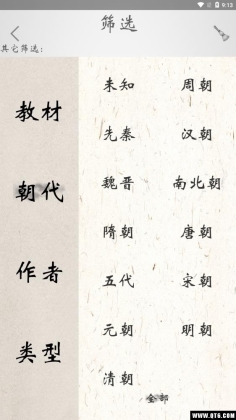 9:13
筛选
其它筛选：
教材
朝代
作者
类型
未知 周朝
先秦 汉朝
魏晋 南北朝
隋朝 唐朝
五代 宋朝
元朝 明朝
清朝
全部
www.QT6.com